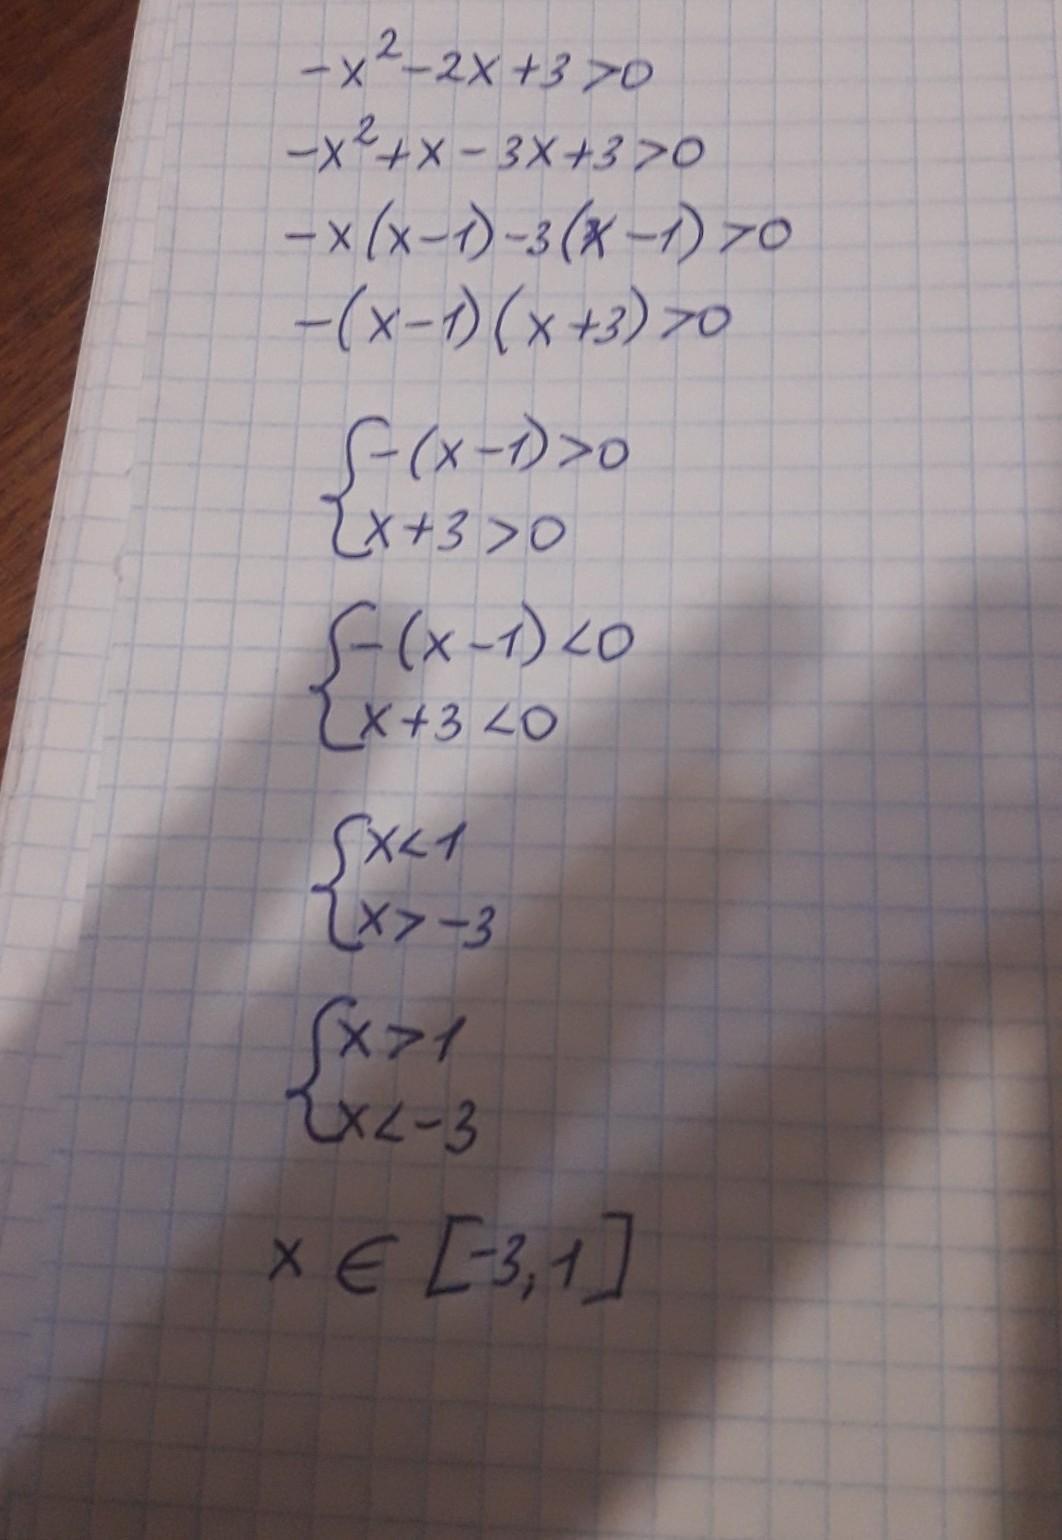 -x²-2x+3>0
-x²+x-3x+3>0
-x(x-1)-3(x-1)>0
-(x-1)(x+3)>0
{-(x-1)>0
x+3>0
{-(x-1)<0
x+3<0
{x<1
x>-3
{x>1
x<-3
x∈[-3,1]